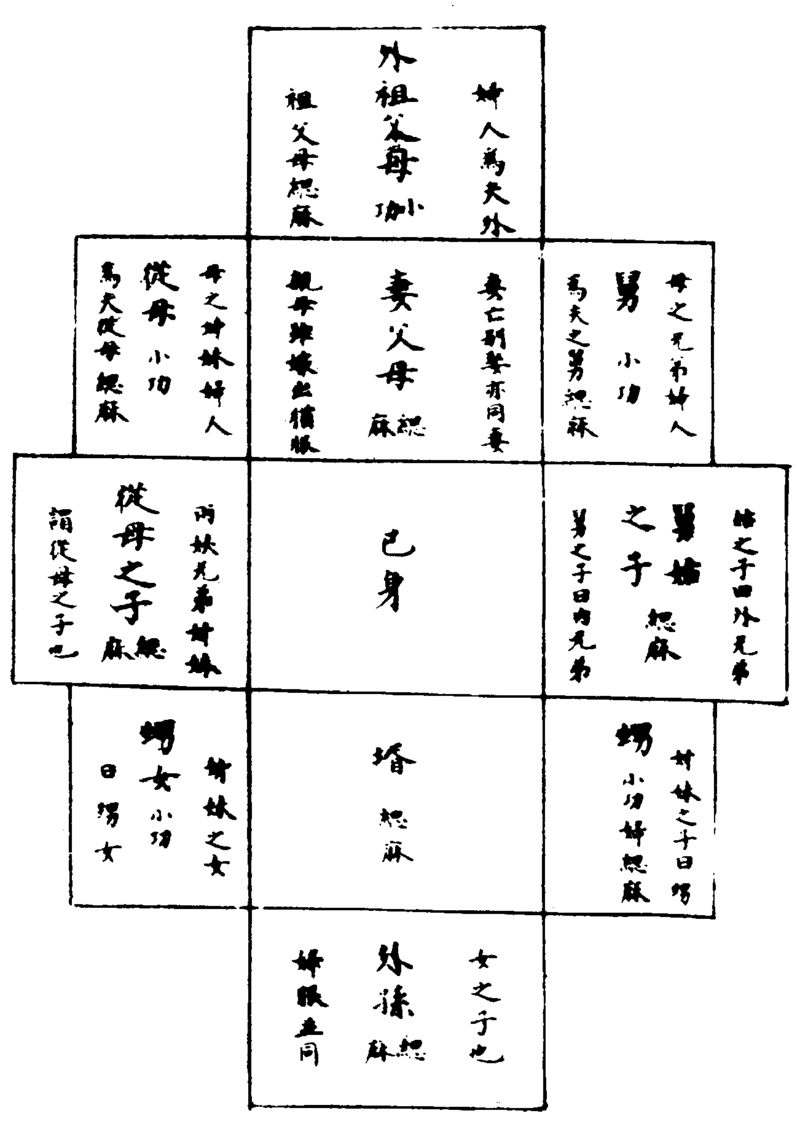 婦人爲夫外
外祖父母
小功
祖父母緦麻
母之兄弟婦人
舅 小功
爲夫之舅緦麻
妻亡別娶亦同妻
妻父母
緦麻
親母雖嫁出猶服
母之姉妹婦人
從母 小功
爲夫從母緦麻
姑之子曰外兄弟
舅姑
之子
緦麻
舅之子曰内兄弟
己身
兩姨兄弟姉妹
從母之子
緦麻
謂從母之子也
姉妹之子曰甥
甥 小功婦緦麻
壻 緦麻
姉妹之女
甥女小功
曰甥女
女之子也
外孫
緦麻
婦服並同